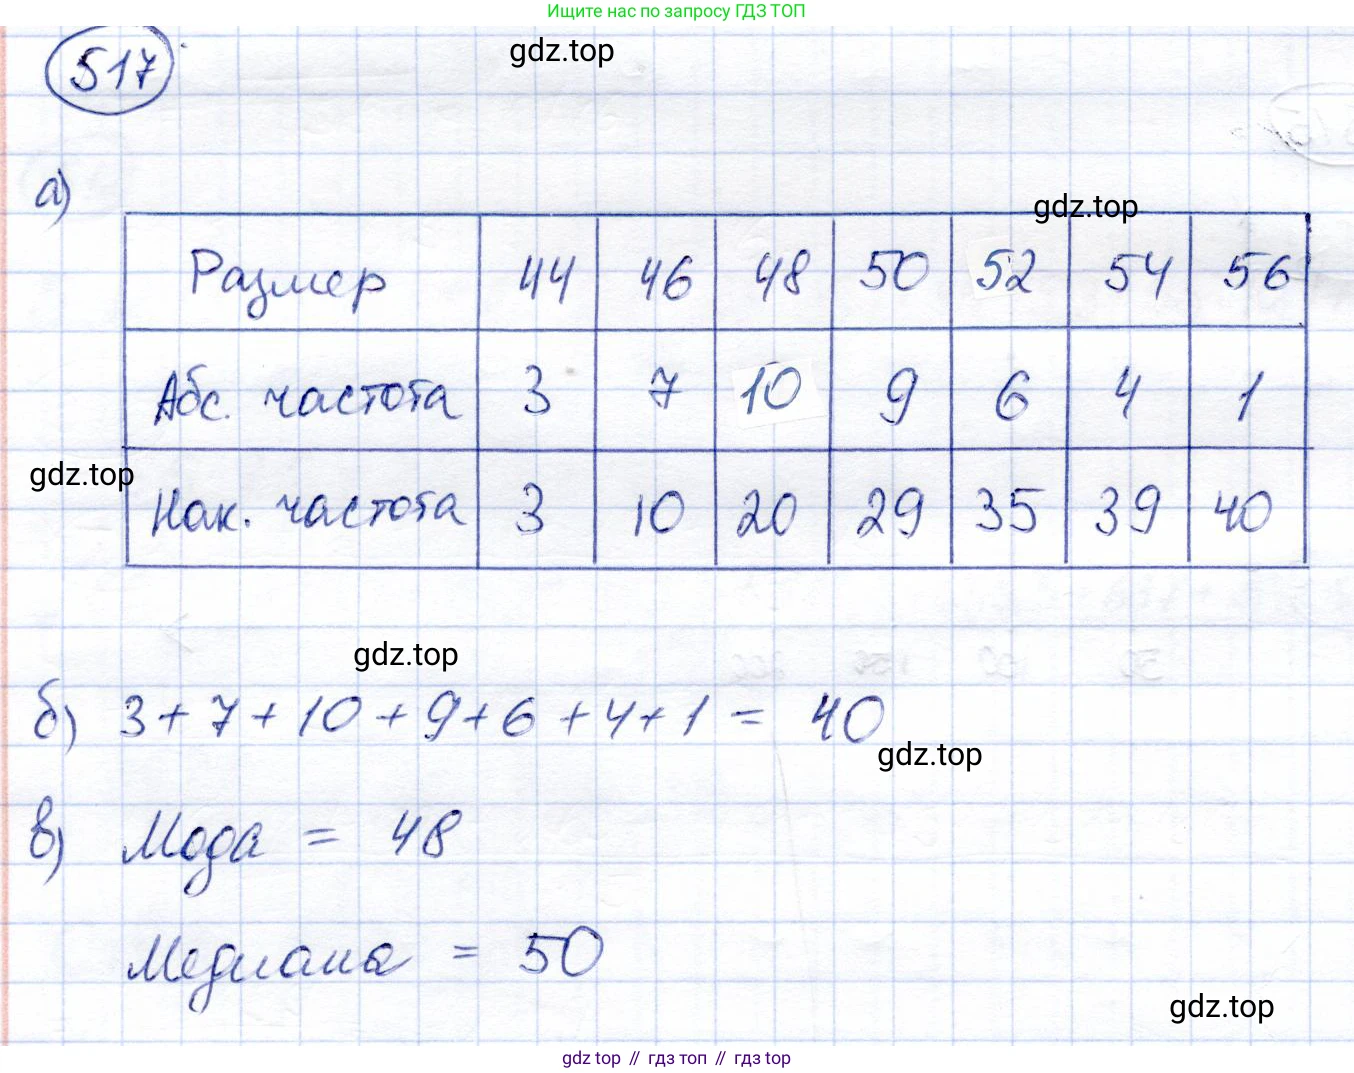 Ищите нас по запросу ГДЗ ТОП
517
gdz.top
а)
gdz.top
Размер 44 46 48 50 52 54 56
Абс. частота 3 7 10 9 6 4 1
gdz.top
Нак. частота 3 10 20 29 35 39 40
gdz.top
б) 3 + 7 + 10 + 9 + 6 + 4 + 1 = 40
gdz.top
в) Мода = 48
Медиана = 50
gdz.top
gdz top // гдз топ // гдз top